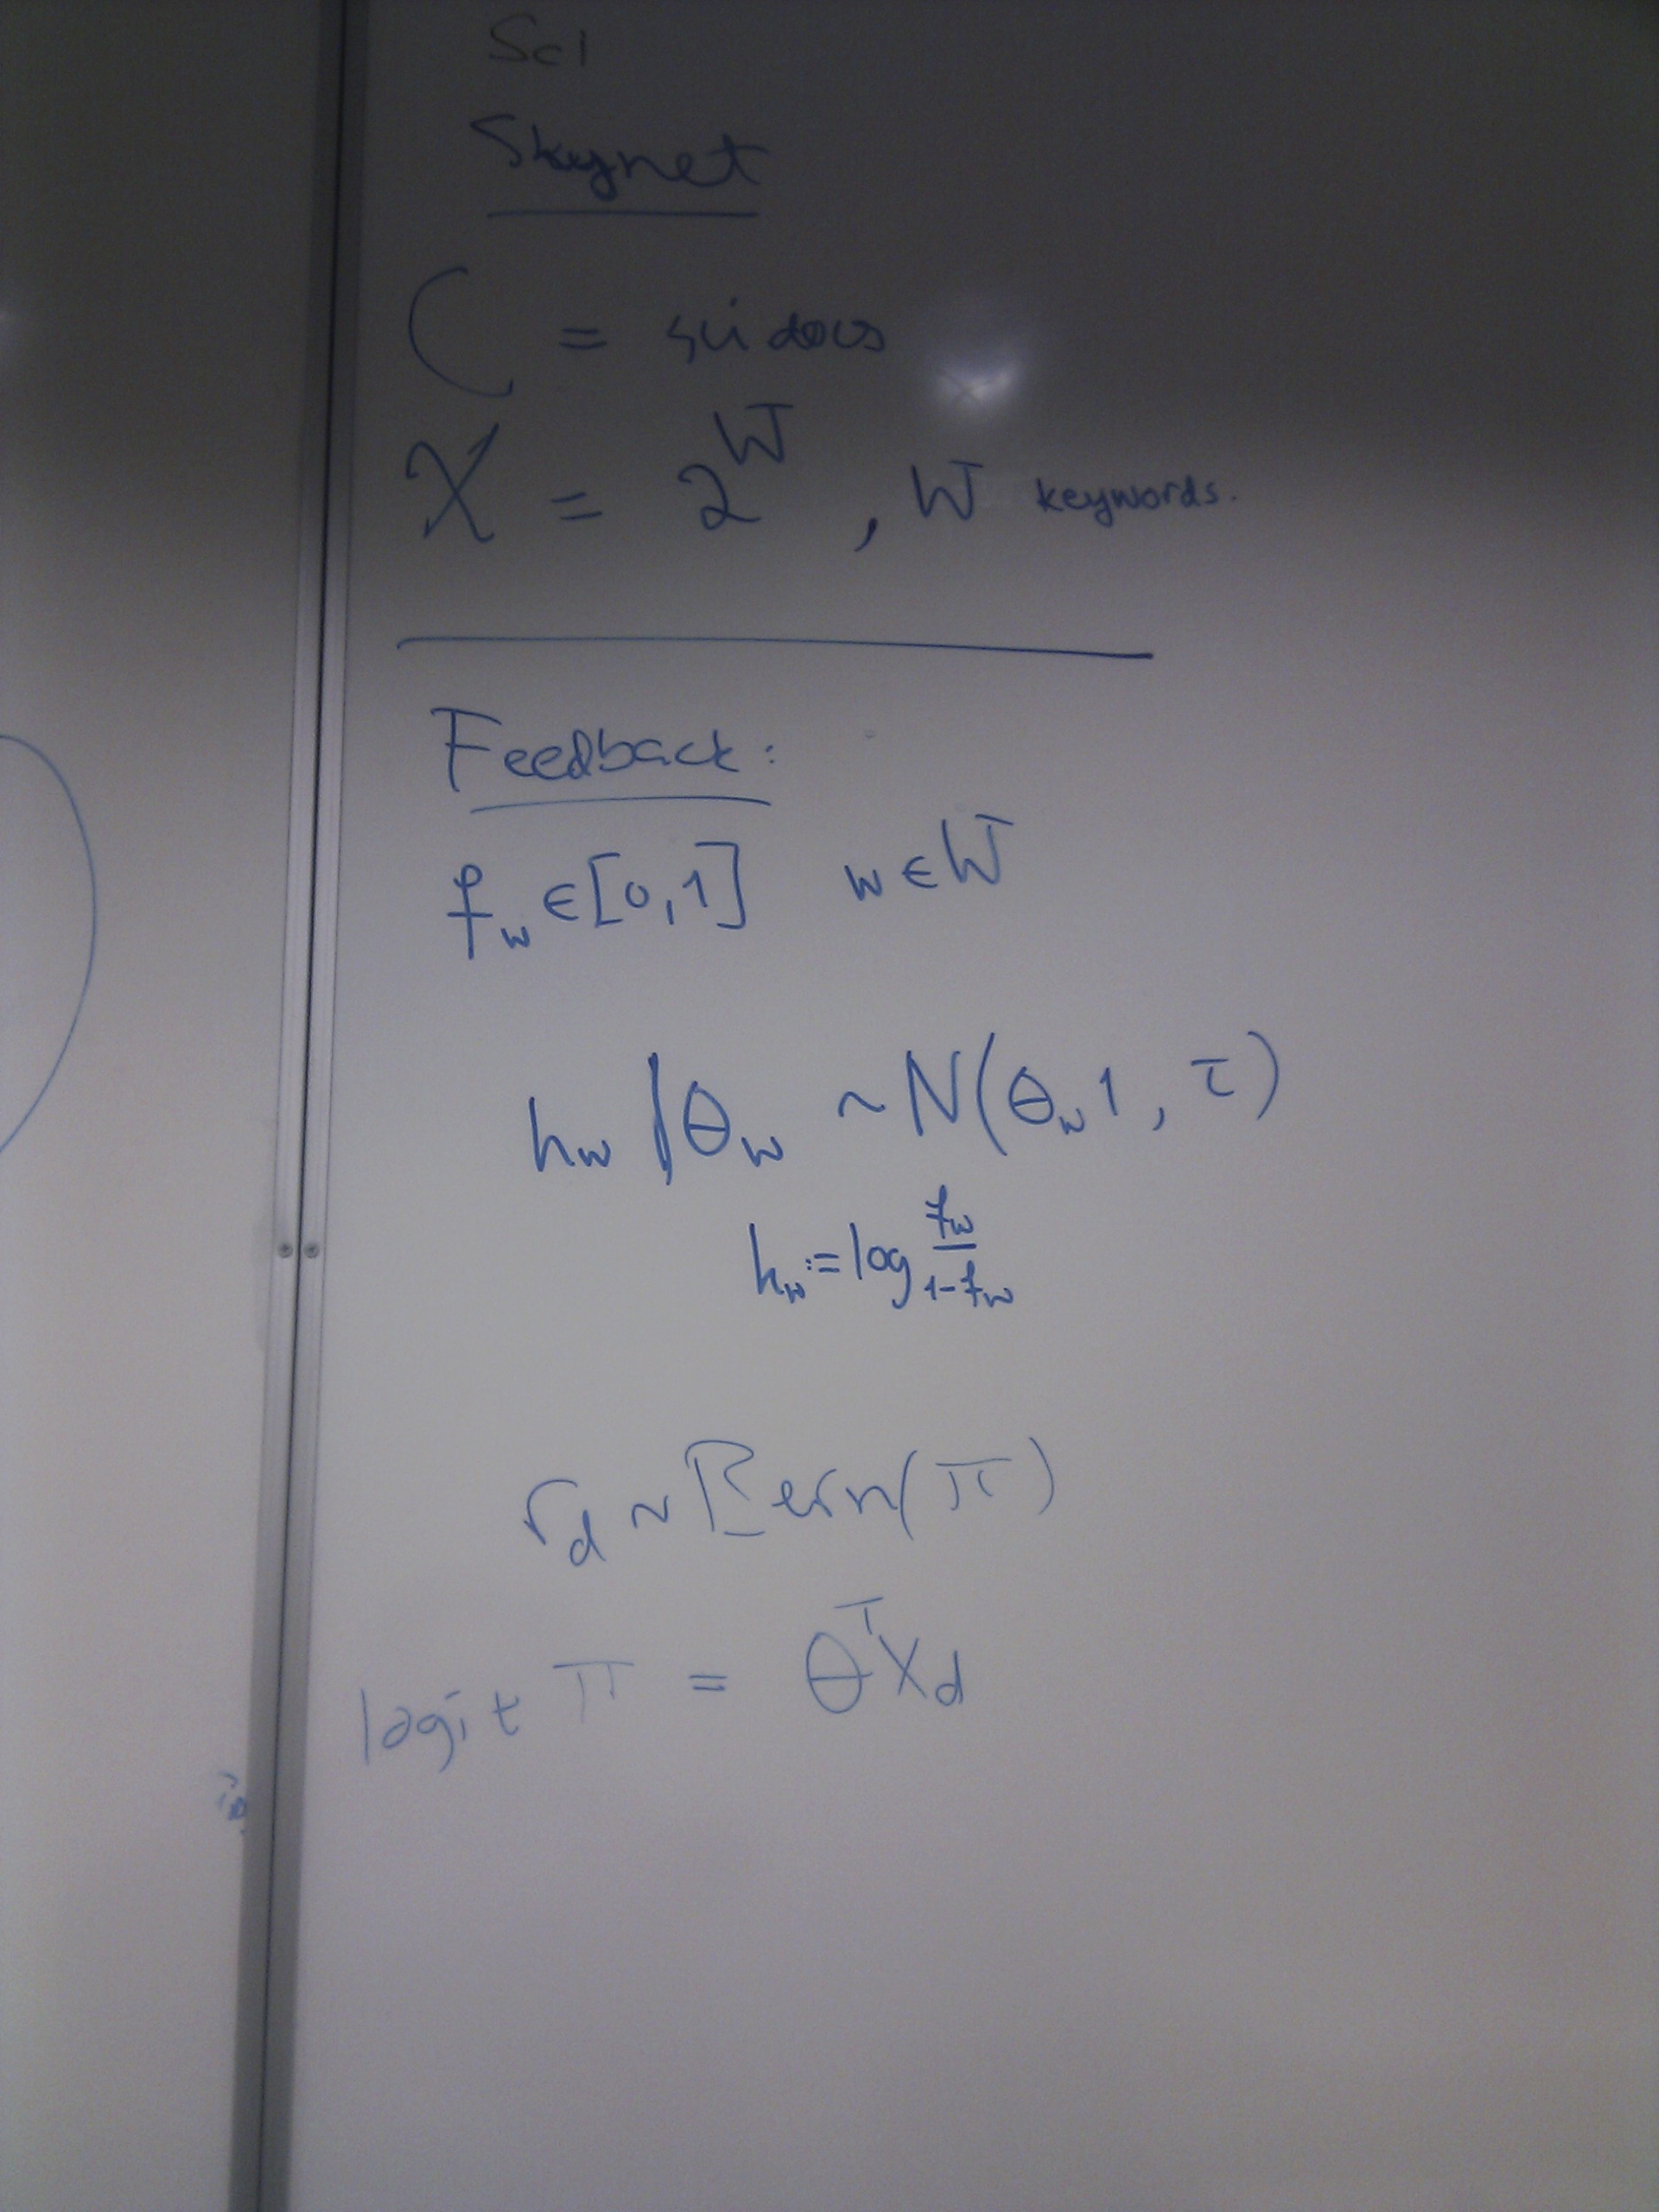 Sci
Skynet
C = sci docs
X = 2^W , W keywords.
Feedback:
f_w ∈ [0,1] w ∈ W
h_w | θ_w ~ N(θ_w 1, τ)
h_w := log f_w / 1-f_w
r_d ~ Bern(π)
logit π = θ^T x_d